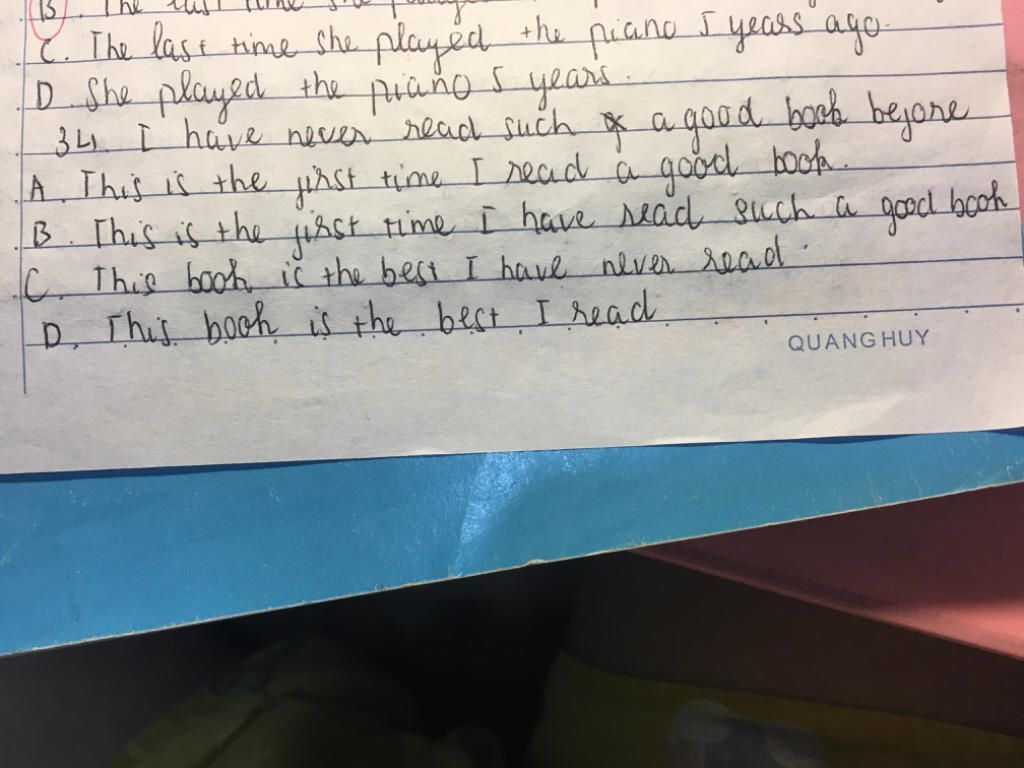 B. The last time she played
C. The last time she played the piano 5 years ago.
D. She played the piano 5 years.
34 I have never read such a good book before
A. This is the first time I read a good book.
B. This is the first time I have read such a good book
C. This book is the best I have never read.
D. This book is the best I read
QUANG HUY